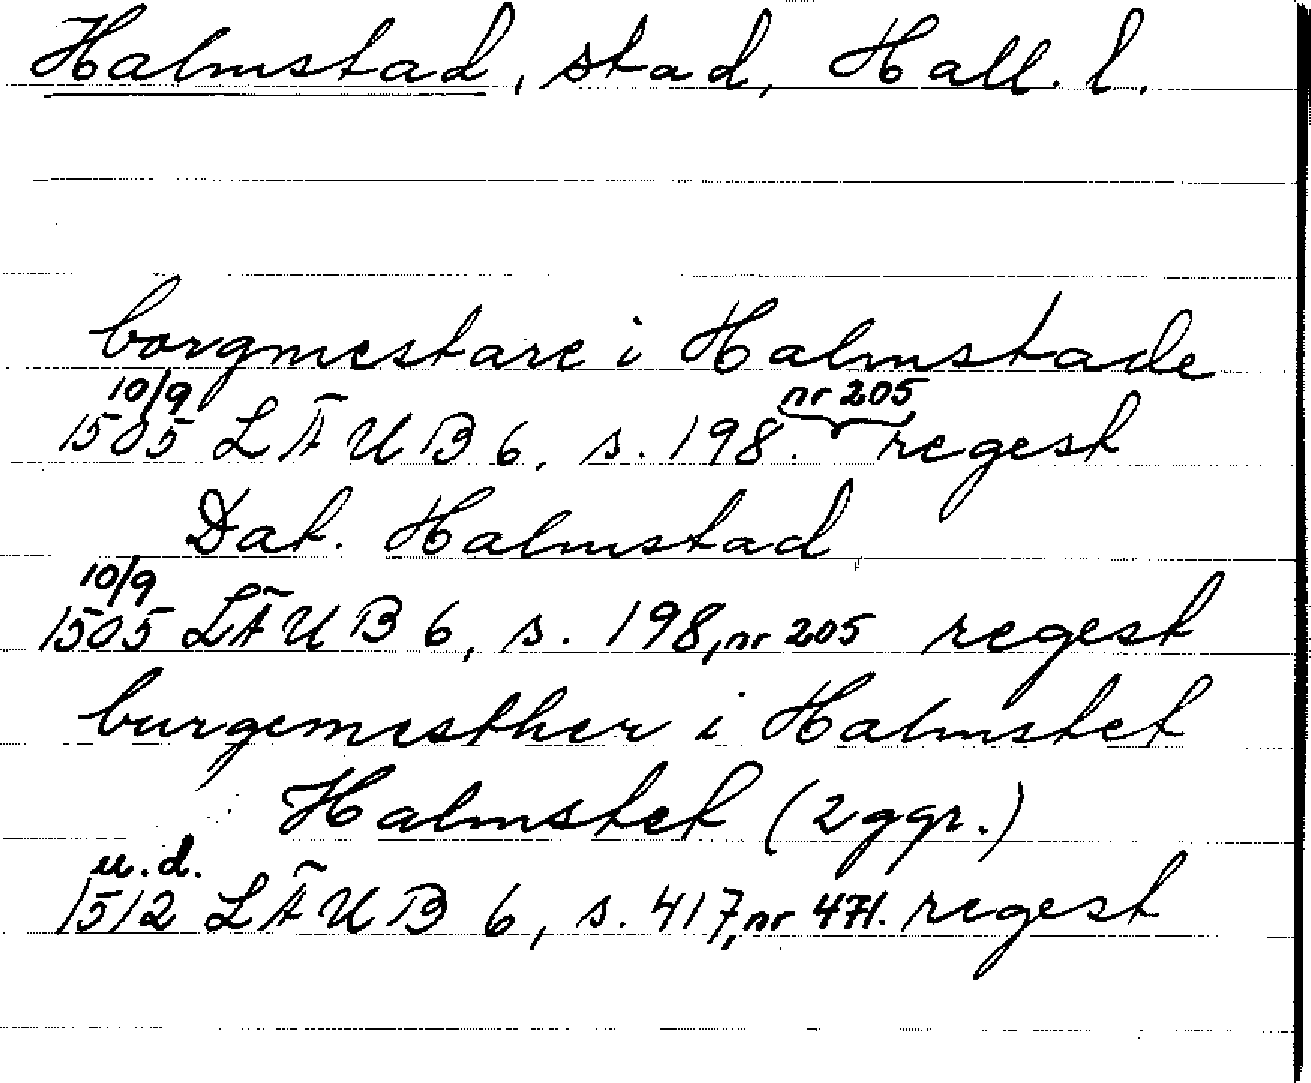 Halmstad, stad, Hall. l.
borgmestare i Halmstade
10/9 nr 205
1505 LÄUB 6, s. 198. regest
Dat. Halmstad
10/9
1505 LÄUB 6, s. 198, nr 205 regest
burgemesther i Halmstet
Halmstet (2 ggr.)
u.d.
1512 LÄUB 6, s. 417, nr 471. regest